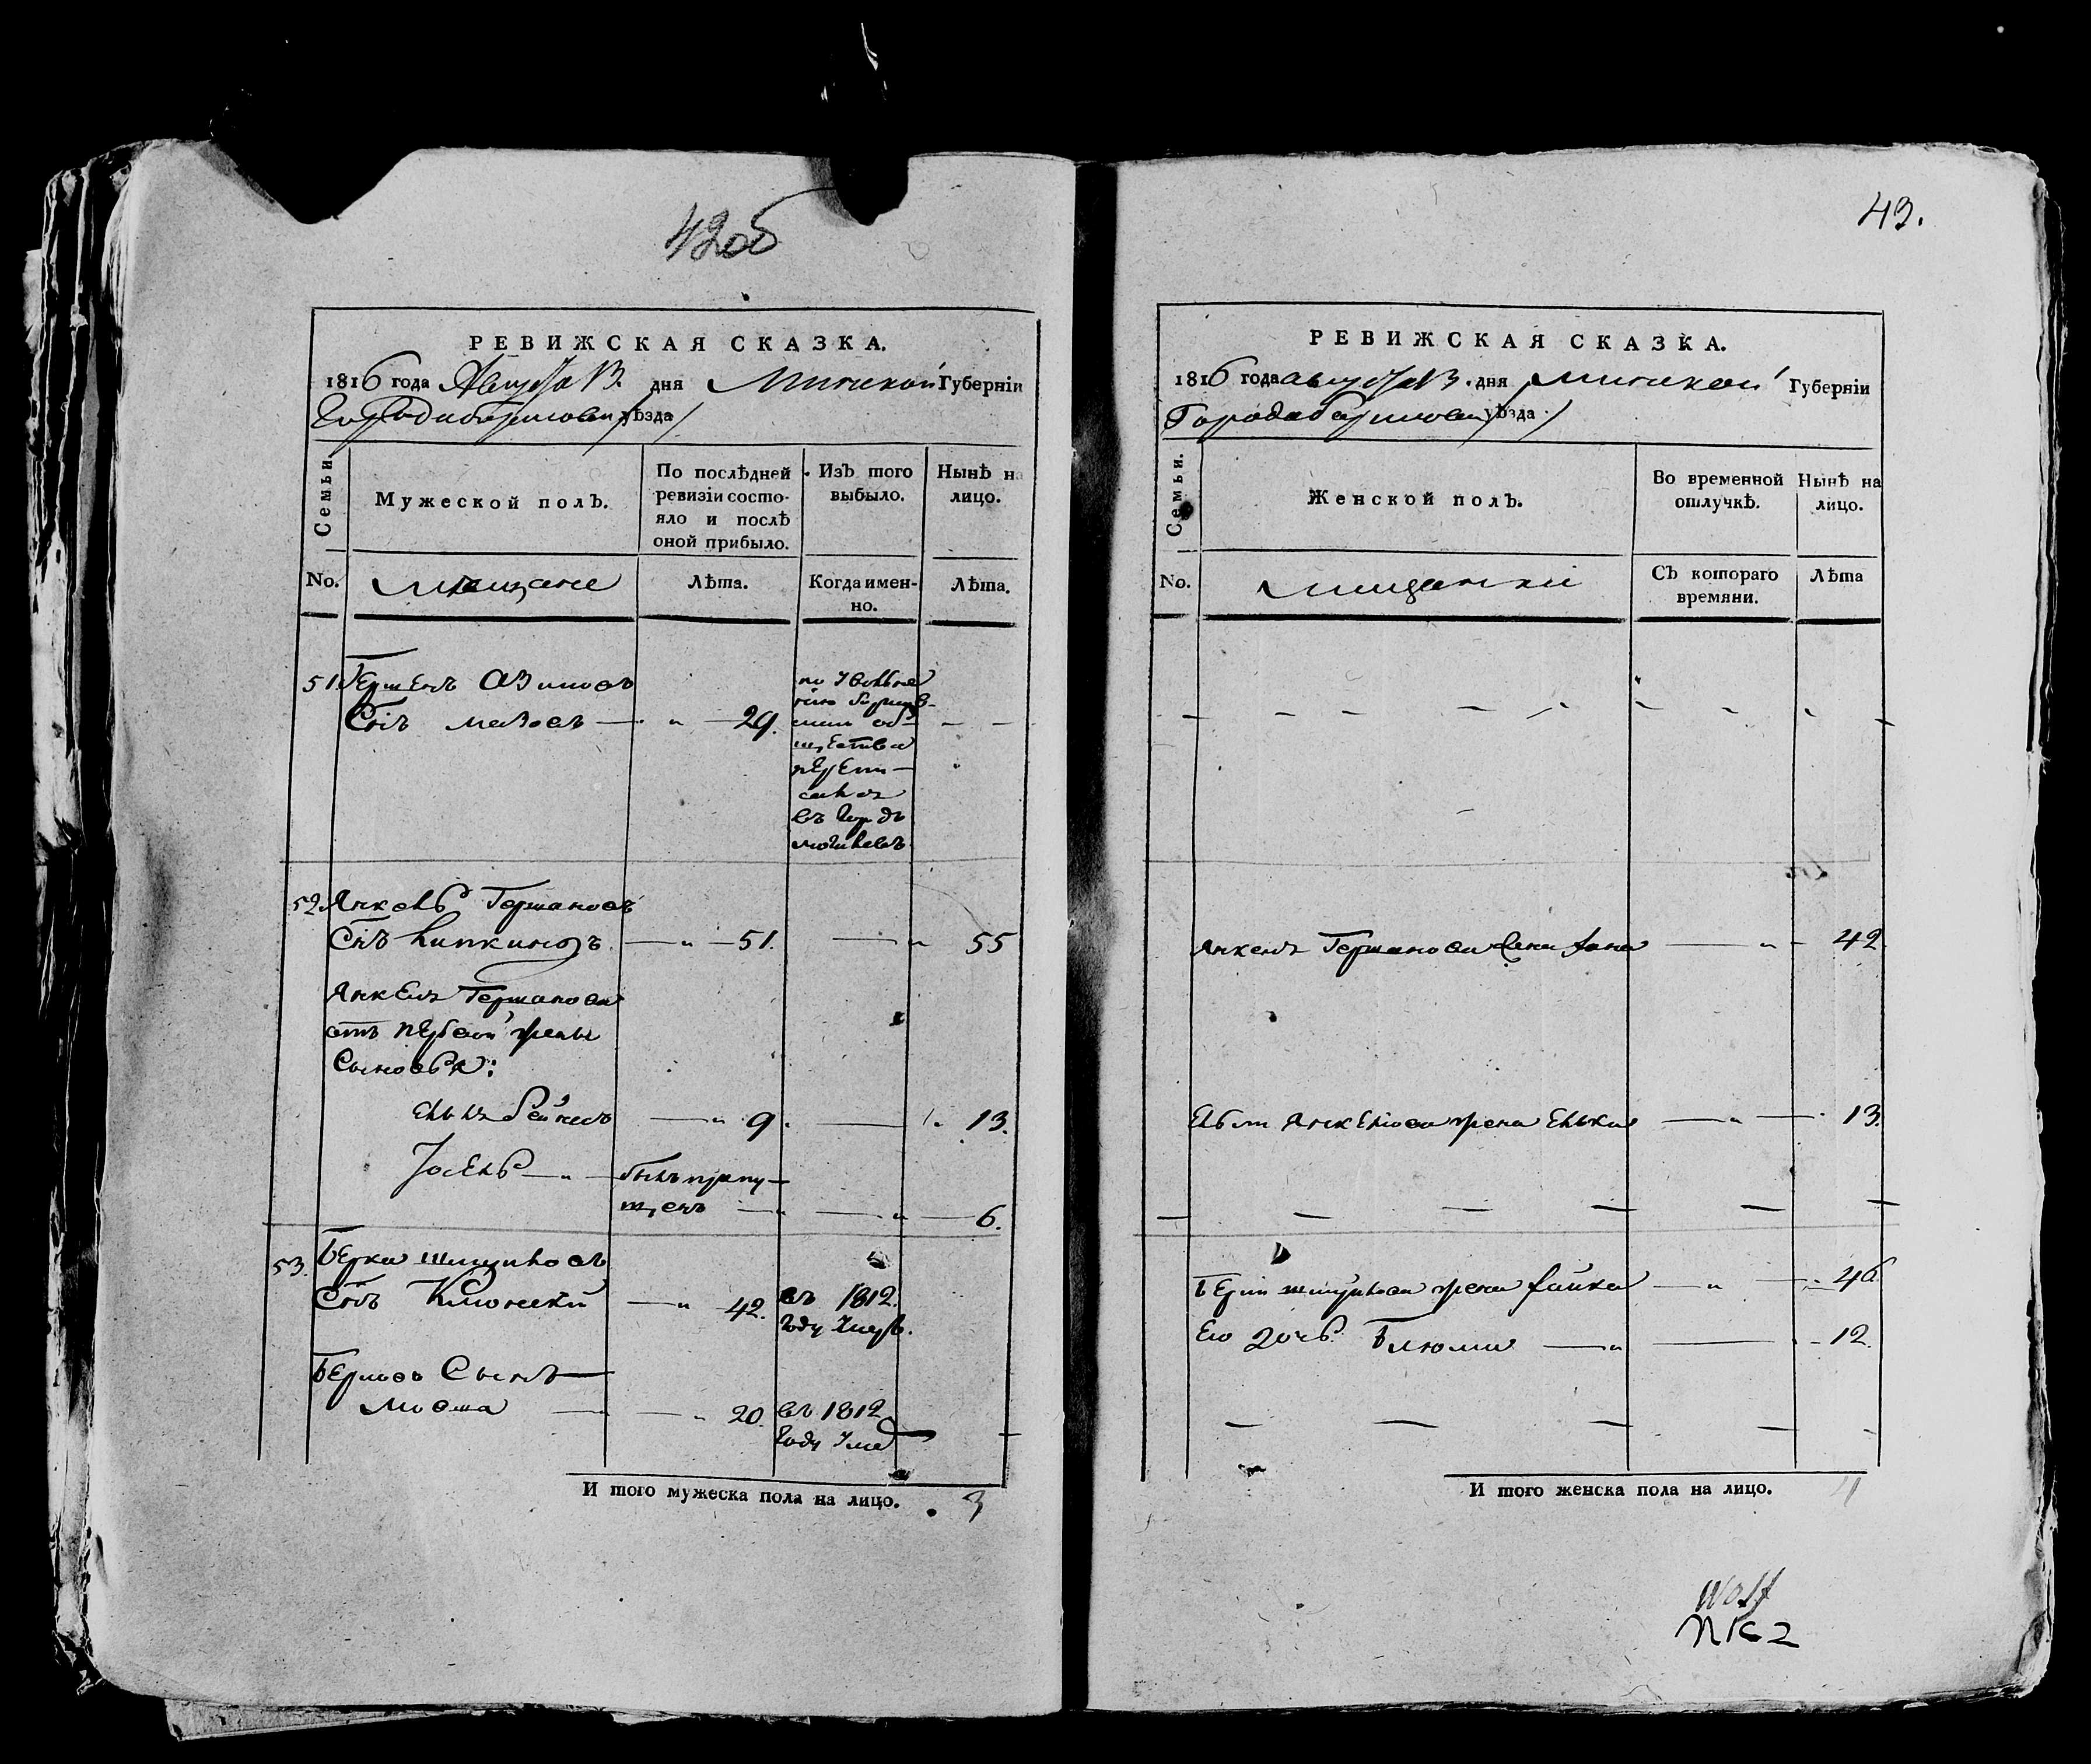 42об
РЕВИЖСКАЯ СКАЗКА.
1816 года Августа 13. дня Минской Губерніи
Города Борисова уѣзда
Семьи
Мужеской полъ.
По послѣдней ревизіи состо-
яло и послѣ оной прибыло.
Изъ того выбыло.
Нынѣ на лицо.
No.
Мещане
Лѣта.
Когда имен-
но.
Лѣта.
51. Гершенъ
Снъ 29.
по увольне
нію борисов-
скаго об-
щества
перепи-
сался
въ город
могилевъ
52. Янкель Гершановъ
Снъ 51. 55
Янкеля Гершанова
отъ первой жены
Сыновья:
9. 13.
Іосель былъ пропу-
щенъ 6.
53. Берка Шмуйловъ
Снъ 42. въ 1812.
году умер.
Берковъ Сынъ
Мовша 20. въ 1812
году уме
И того мужеска пола на лицо. 3
43.
РЕВИЖСКАЯ СКАЗКА.
1816 года августа 13. дня Минской Губерніи
Города Борисова уѣзда
Семьи.
Женской полъ.
Во временной отлучкѣ.
Нынѣ на лицо.
No.
мещанки
Съ котораго времяни.
Лѣта
Янкеля Гершанова жена 42
Янкелева жена Элька 13.
Берки Шмуйлова жена Файка 46
Его дочь Блюма 12
И того женска пола на лицо. 4
Wolf
NK 2